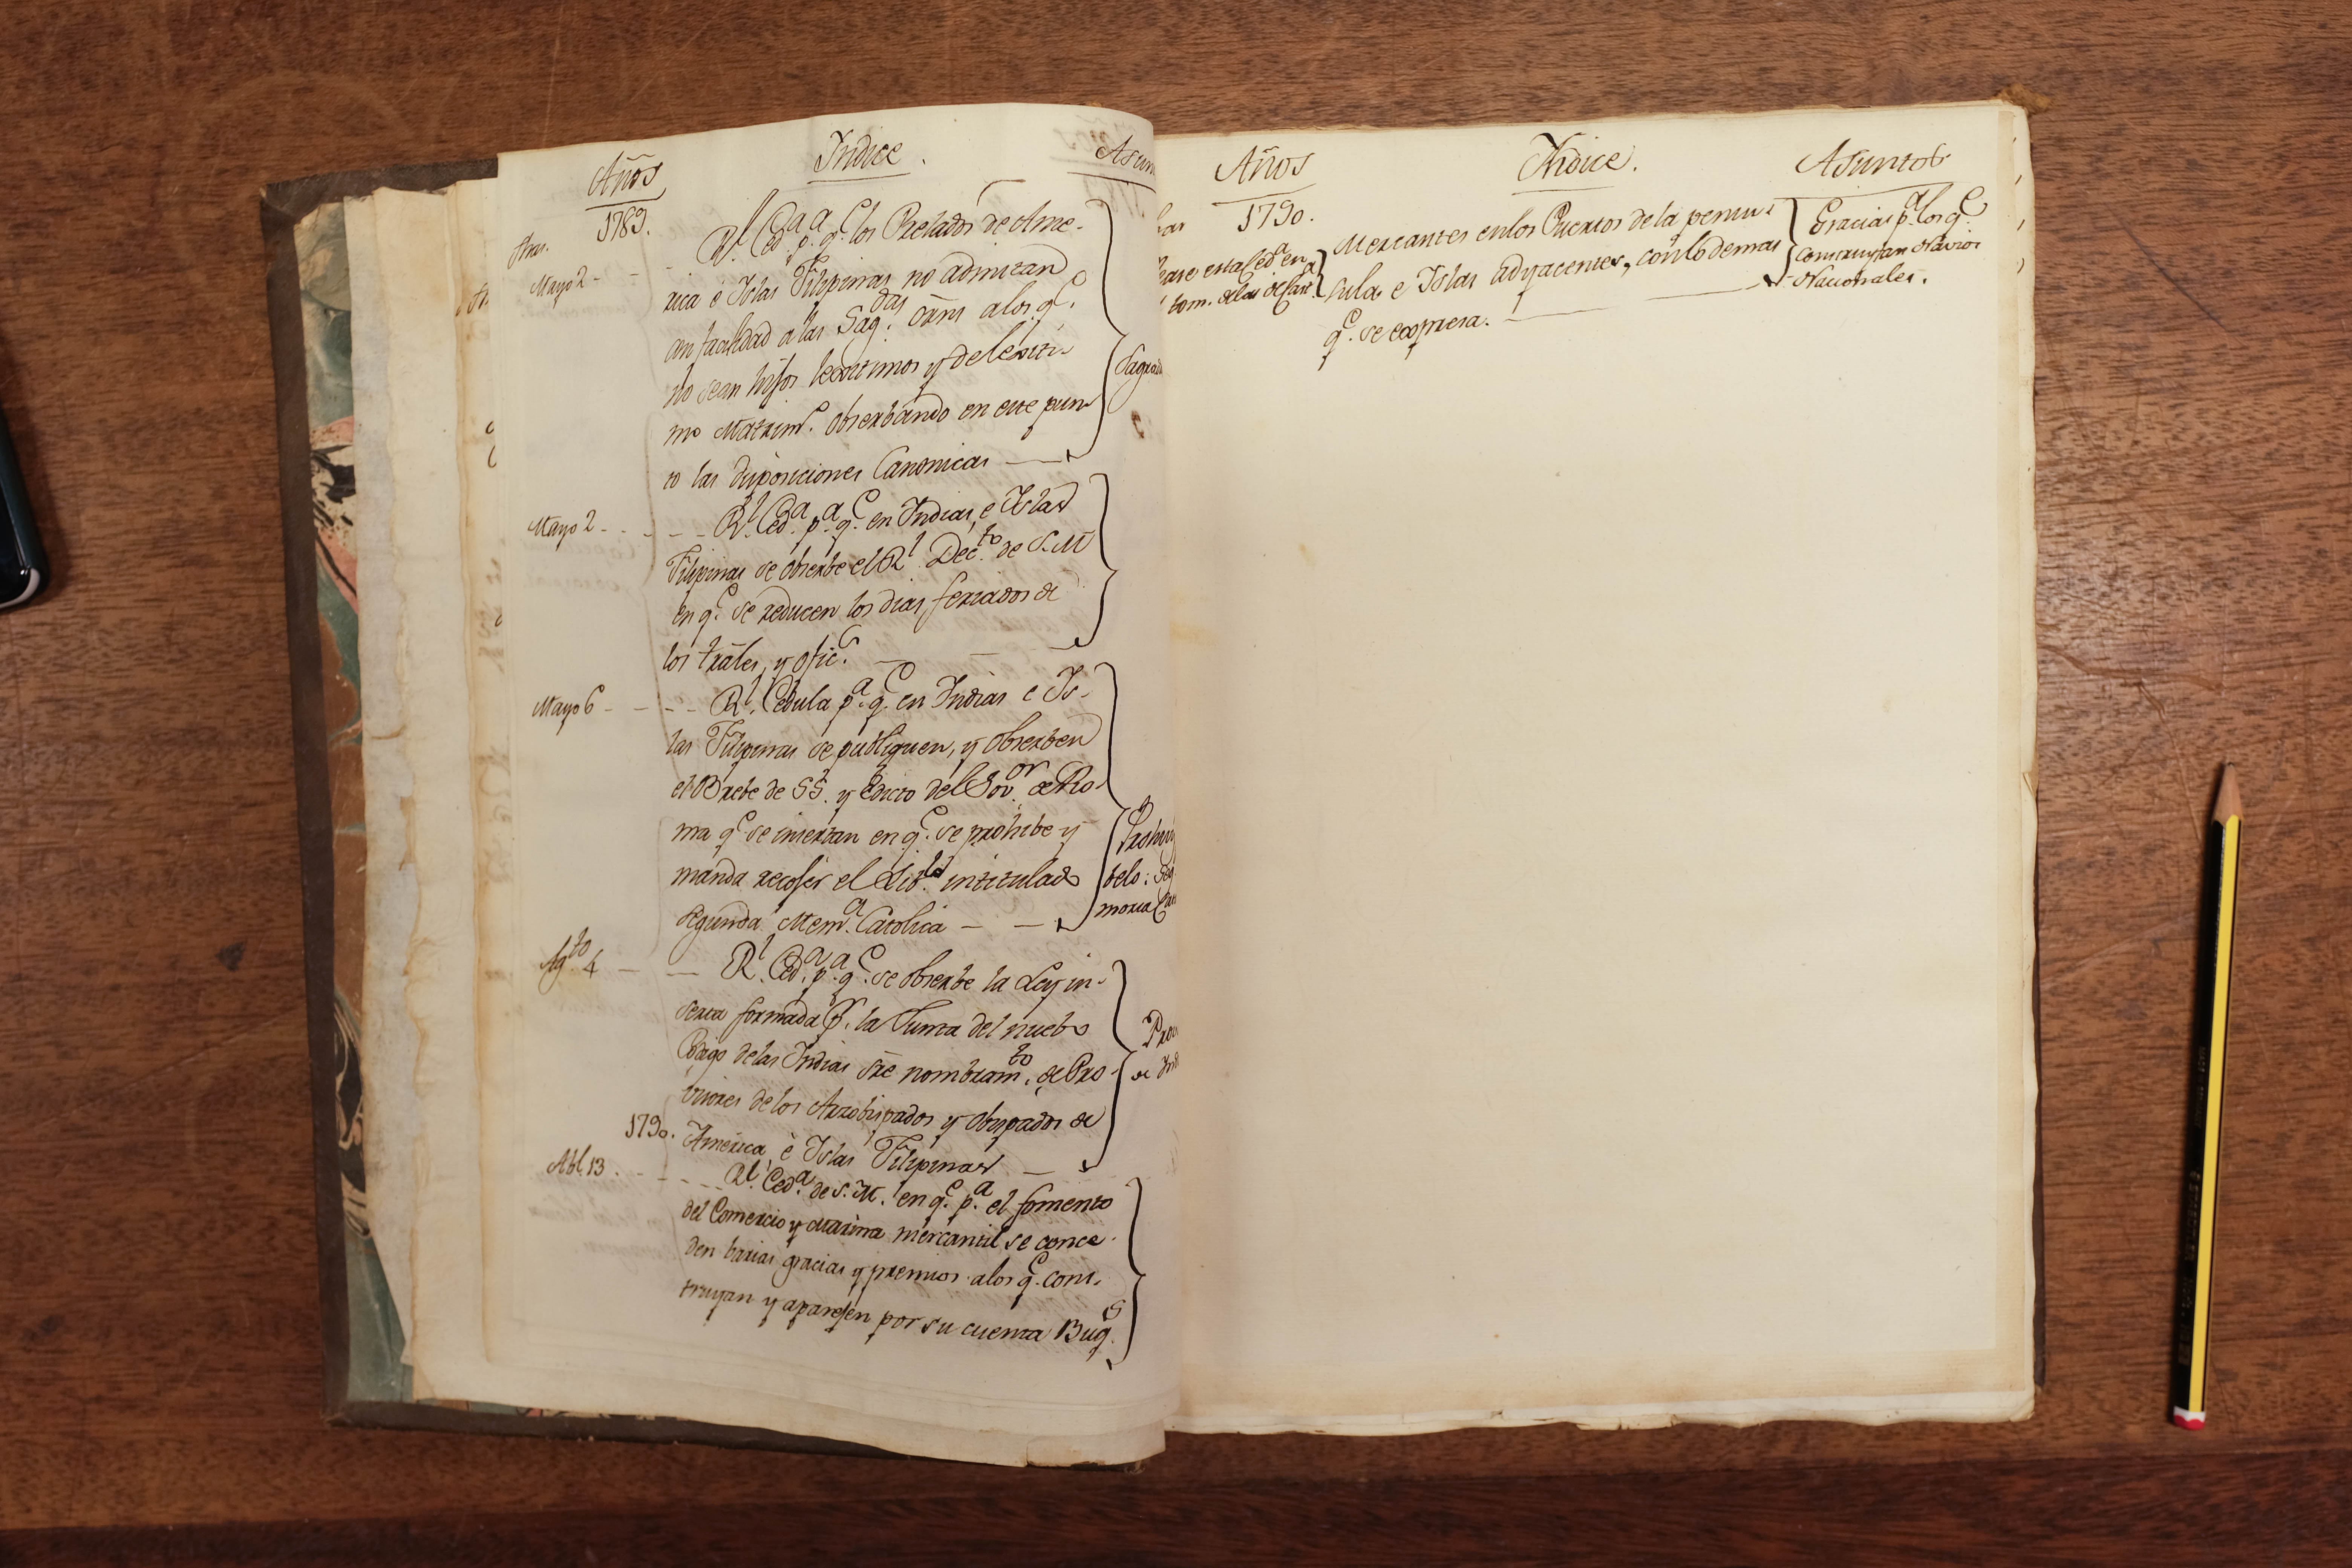 Años
Indice.
1789.
Mayo 2 - - - Rl. Ceda. pa. qe. los Prelados de Ame-
rica é Islas Filipinas no admitan
con facilidad a las Sagdas. Orñs alos qe.
no sean hijos lexitimos y de lexiti-
mo Matrimo. Obserbando en este pun-
to las disposiciones Canonicas —
Sagra
Mayo 2 - - - - Rl. Ceda. pa. qe. en Indias, e Islas
Filipinas se obserbe el Rl. Decto. de S.M
en qe. se reducen los dias feriados de
los trāles, y ofics.
Mayo 6 - - - - Rl. Cedula pa. qe. en Indias e Is-
las Filipinas se publiquen, y Obserben
el Brebe de SS. y Edicto del Govor. de Ro-
ma qe. se insertan en qe. se prohibe y
manda recoser el intitulado
segunda Mema. Catolica — —
belo: Seg
moria
Agto. 4 — — Rl. Ceda. pa. qe. se obserbe la Ley in-
serta formada pr. la Junta del nuebo
Codigo de las Indias sr̃e nombramto. de Pro-
visores de los Arzobispados y Obispados de
America, é Islas Filipinas —
Pro
de Ind
1790.
Abl. 13. - - - - Rl. Ceda. de S.M. en qe. pa. el fomento
del Comercio y Marina mercantil se conce-
den barias gracias y premios alos qe. cons-
truyan y aparejen por su cuenta Buqs.
Años
Indice.
Asuntos
1790.
Mercantes enlos Puertos de la penin-
sula e Islas adyacentes, con lo demas
qe. se expresa. —
ease esta Ceda. en
tom. delas de
Gracias pa. los qe.
construyan Navios
Nacionales.